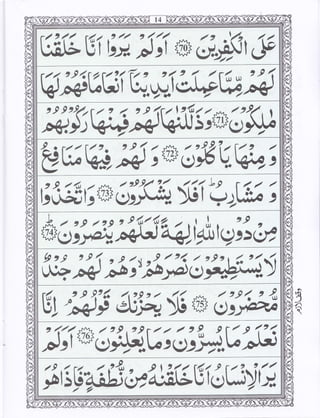 14
عَلَى الْكٰفِرِيْنَ ﴿70﴾ اَوَلَمْ يَرَوْا اَنَّا خَلَقْنَا
لَهُمْ مِّمَّا عَمِلَتْ اَيْدِيْنَاۤ اَنْعَامًا فَهُمْ لَهَا
مٰلِكُوْنَ ﴿71﴾ وَذَلَّلْنٰهَا لَهُمْ فَمِنْهَا رَكُوْبُهُمْ
وَ مِنْهَا يَاْكُلُوْنَ ﴿72﴾ وَ لَهُمْ فِيْهَا مَنَافِعُ
وَ مَشَارِبُ ؕ اَفَلَا يَشْكُرُوْنَ ﴿73﴾ وَاتَّخَذُوْا
مِنْ دُوْنِ اللّٰهِ اٰلِهَةً لَّعَلَّهُمْ يُنْصَرُوْنَ ﴿74﴾ؕ
لَا يَسْتَطِيْعُوْنَ نَصْرَهُمْ ۙ وَهُمْ لَهُمْ جُنْدٌ
مُّحْضَرُوْنَ ﴿75﴾ فَلَا يَحْزُنْكَ قَوْلُهُمْ ۘ اِنَّا
نَعْلَمُ مَا يُسِرُّوْنَ وَمَا يُعْلِنُوْنَ ﴿76﴾ اَوَلَمْ
يَرَ الْاِنْسَانُ اَنَّا خَلَقْنٰهُ مِنْ نُّطْفَةٍ فَاِذَا هُوَ
وقف لازم